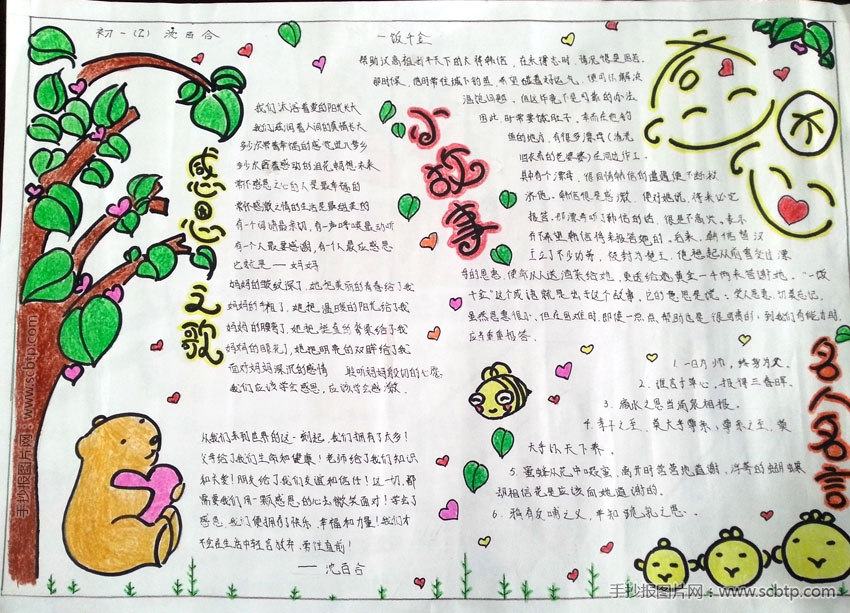 初一(2) 沈百合
感恩之歌
我们沐浴着爱的阳光长大
我们滋润着人间的真情长大
多少次带着幸福的感觉进入梦乡
多少次带着感动的泪花畅想未来
常怀感恩之心的人是最幸福的
常怀感激之情的生活是最甜美的
有一个词语最亲切,有一声呼唤最动听
有一个人最要感谢,有一个人最应感恩
她就是——妈妈
妈妈的皱纹深了,她把美丽的青春给了我
妈妈的手粗了,她把温暖的阳光给了我
妈妈的腰弯了,她把挺直的脊梁给了我
妈妈的眼花了,她把明亮的双眸给了我
面对妈妈深沉的感情
我们应该学会感恩,应该学会感激
从我们来到世界的这一刻起,我们拥有了太多!
父母给了我们生命和健康!老师给了我们知识
和关爱!朋友给了我们友谊和信任!这一切,都
需要我们用一颗感恩的心去微笑面对!学会了
感恩,我们便拥有了快乐、幸福和力量!我们才
不会在生活中轻言放弃,带往直前!
——沈百合
小故事
一饭千金
帮助汉高祖打平天下的大将韩信,在未得志时,情况很是困苦
那时候,他时常往城下钓鱼,希望碰着好运气,便可以解决
温饱问题。但这毕竟不是可靠的办法
因此时常要饿肚子。幸而在他钓
鱼的地方,有很多漂母(清洗
旧衣有的老婆婆)在河边作工。
其中有个漂母,很同情韩信的遭遇便不断救
济他。韩信很是感激,便对她说,将来必定
报答,那漂母听了韩信的话,很是不高兴,表示
并不希望韩信将来报答她的。后来,韩信替汉
王立了不少功劳,被封为楚王,他想起从前曾受过漂
母的恩惠,便命从人送酒菜给她,更送给她黄金一千两来答谢她。“一饭
千金”这个成语就是出于这个故事,它的意思是说:受人恩惠,切莫忘记,
虽然恩惠很小,但在困难时,即使一点点帮助也是很可贵的;到我们有能力时,
应当重重报答。
不
心
名人名言
1. 一日为师,终身为父。
2. 谁言寸草心,报得三春晖。
3. 滴水之恩当涌泉相报。
4. 孝子之至,莫大乎尊亲;尊亲之至,莫
大乎以天下养。
5. 蜜蜂从花中啜蜜,离开时营营地道谢,浮夸的蝴蝶
却相信花是应该向他道谢的。
6. 鸦有反哺之义,羊知跪乳之恩。
手抄报图片网:www.scbtp.com
手抄报图片网:www.scbtp.com